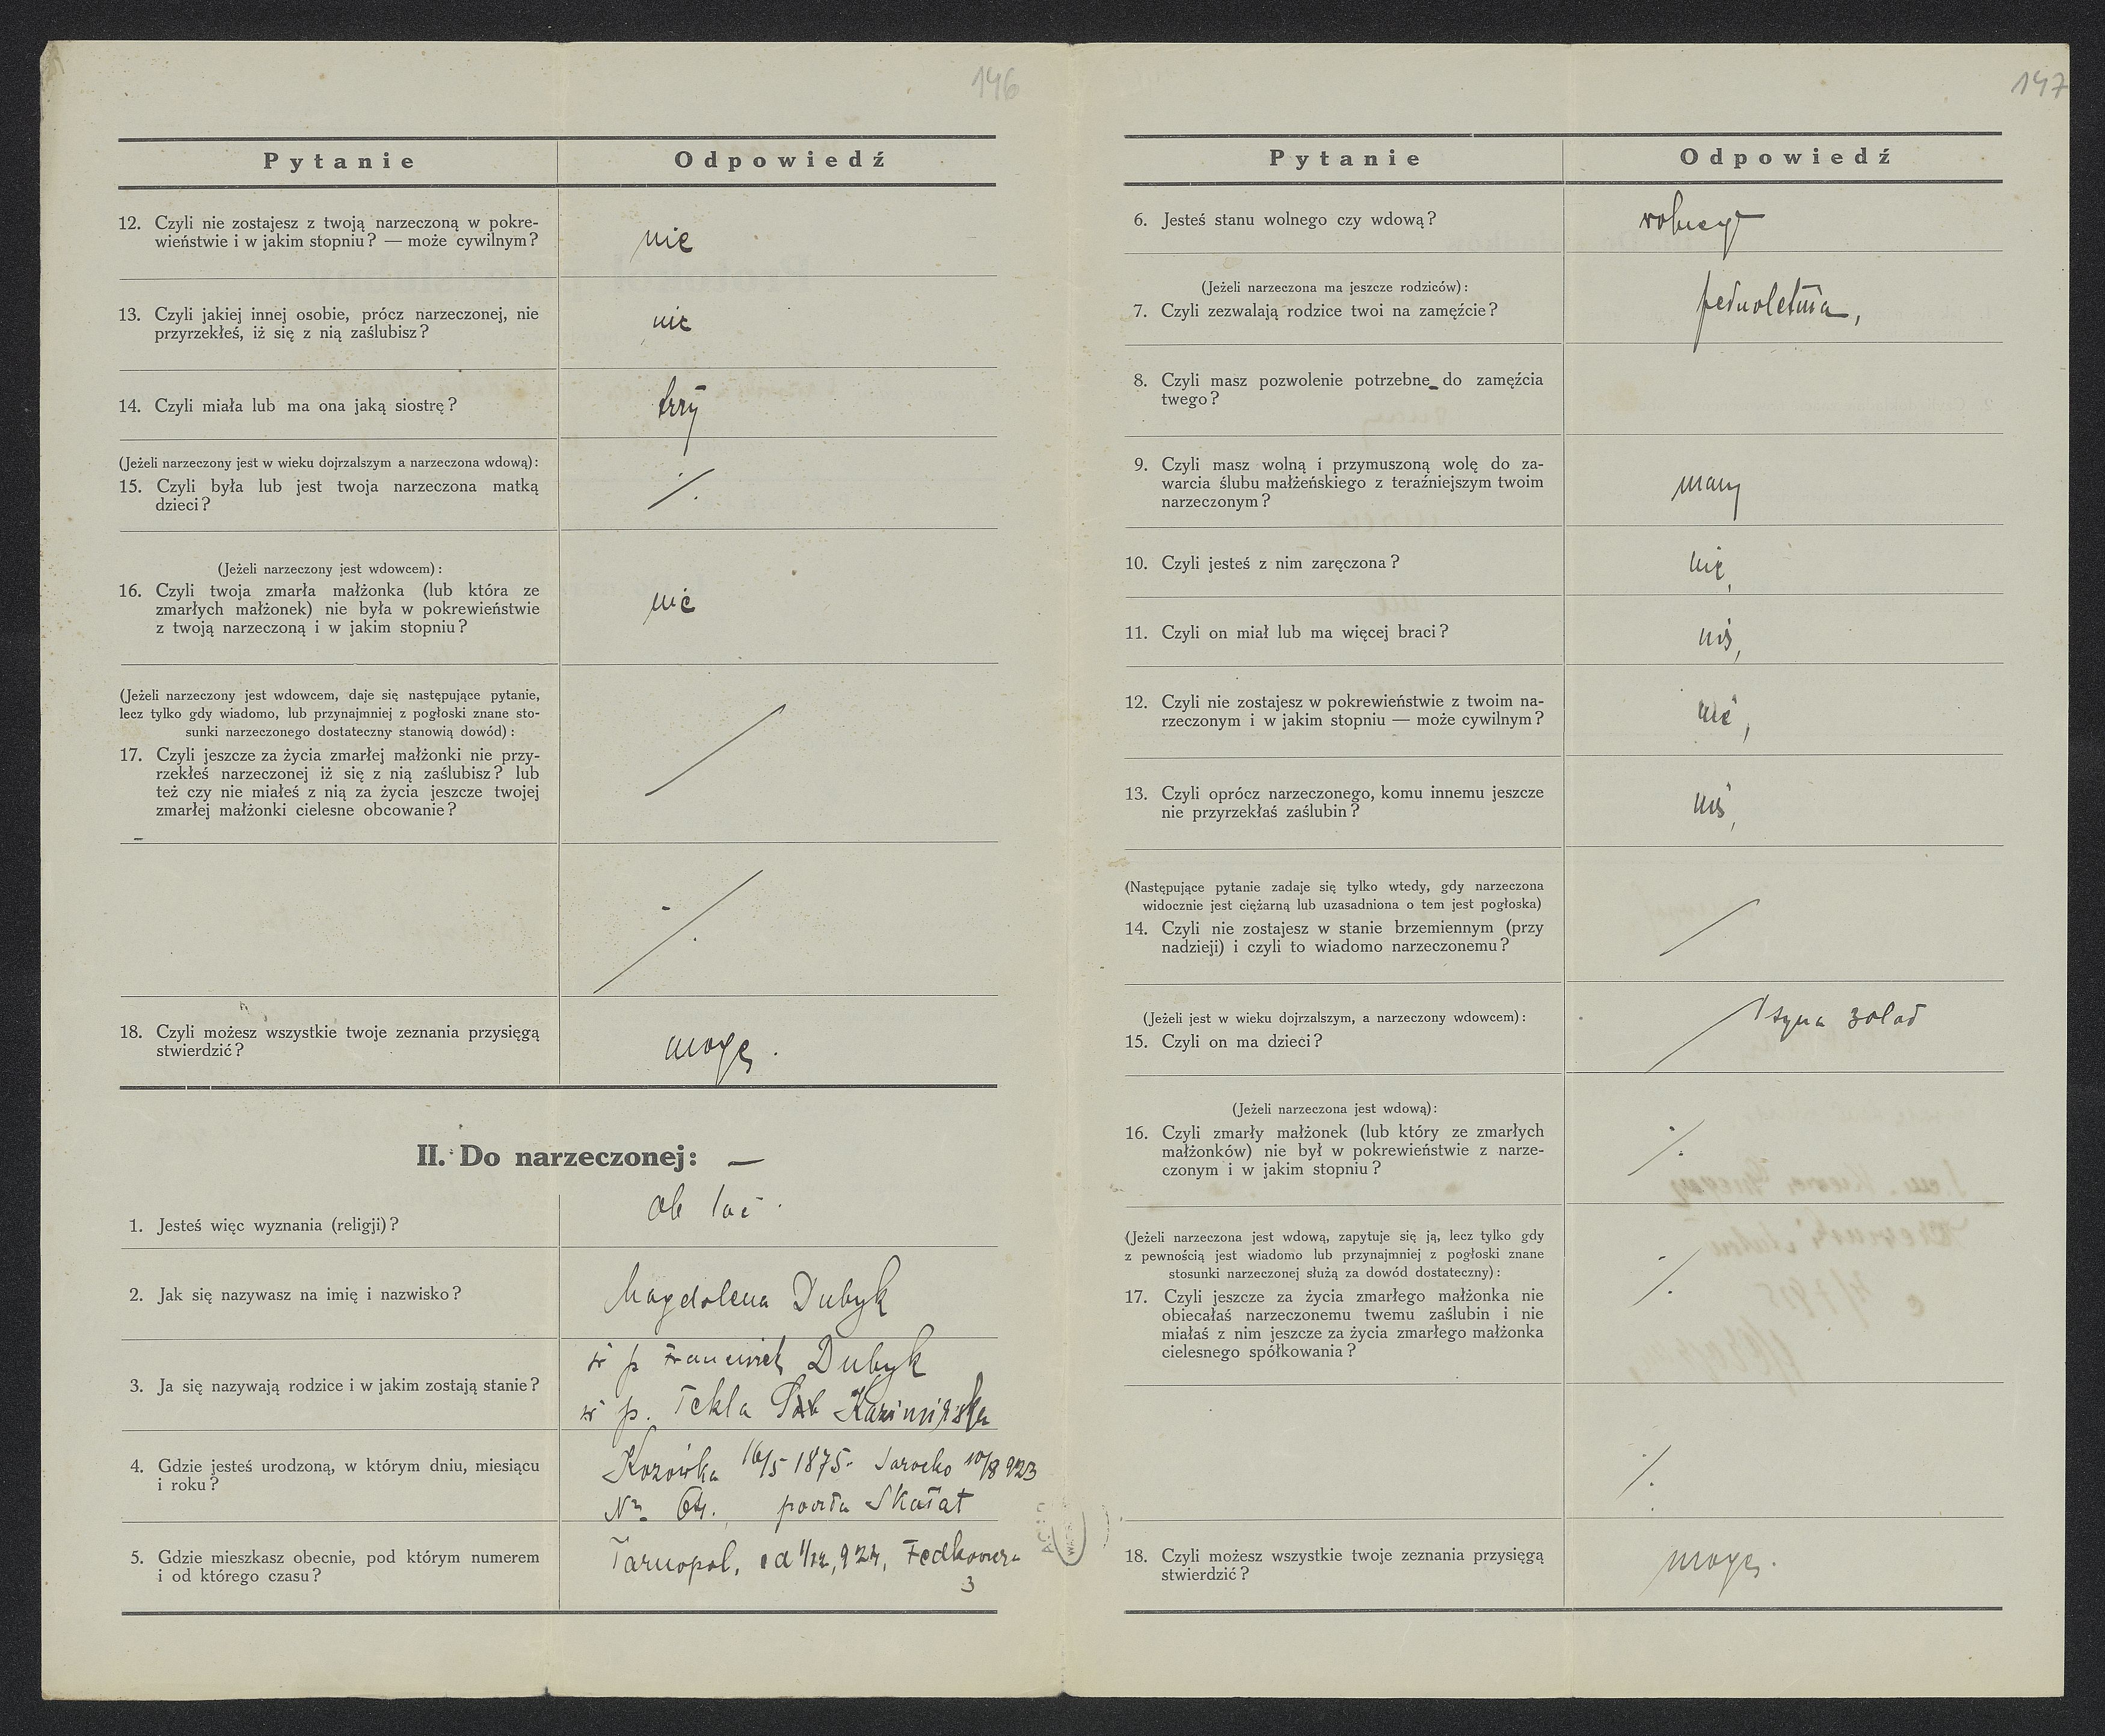 146
Pytanie
Odpowiedź
12. Czyli nie zostajesz z twoją narzeczoną w pokre-
wieństwie i w jakim stopniu? — może cywilnym?
nie
13. Czyli jakiej innej osobie, prócz narzeczonej, nie
przyrzekłeś, iż się z nią zaślubisz?
nie
14. Czyli miała lub ma ona jaką siostrę?
trzy
(Jeżeli narzeczony jest w wieku dojrzalszym a narzeczona wdową):
15. Czyli była lub jest twoja narzeczona matką
dzieci?
(Jeżeli narzeczony jest wdowcem):
16. Czyli twoja zmarła małżonka (lub która ze
zmarłych małżonek) nie była w pokrewieństwie
z twoją narzeczoną i w jakim stopniu?
nie
(Jeżeli narzeczony jest wdowcem, daje się następujące pytanie,
lecz tylko gdy wiadomo, lub przynajmniej z pogłoski znane sto-
sunki narzeczonego dostateczny stanowią dowód):
17. Czyli jeszcze za życia zmarłej małżonki nie przy-
rzekłeś narzeczonej iż się z nią zaślubisz? lub
też czy nie miałeś z nią za życia jeszcze twojej
zmarłej małżonki cielesne obcowanie?
18. Czyli możesz wszystkie twoje zeznania przysięgą
stwierdzić?
mogę.
II. Do narzeczonej: —
1. Jesteś więc wyznania (religji)?
ob łać.
2. Jak się nazywasz na imię i nazwisko?
Magdolena Dubyk
3. Ja się nazywają rodzice i w jakim zostają stanie?
ś p Franciszek Dubyk
ś p. Tekla Kazimirska
4. Gdzie jesteś urodzoną, w którym dniu, miesiącu
i roku?
Kozówka 16/5 1875. 10/8 923
No 64. poczta Skałat
5. Gdzie mieszkasz obecnie, pod którym numerem
i od którego czasu?
Tarnopol, od 1/12, 924, Fedkowicza
3
147
Pytanie
Odpowiedź
6. Jesteś stanu wolnego czy wdową?
wolnego
(Jeżeli narzeczona ma jeszcze rodziców):
7. Czyli zezwalają rodzice twoi na zamęźcie?
pełnoletnia,
8. Czyli masz pozwolenie potrzebne do zamęźcia
twego?
9. Czyli masz wolną i przymuszoną wolę do za-
warcia ślubu małżeńskiego z teraźniejszym twoim
narzeczonym?
mam
10. Czyli jesteś z nim zaręczona?
nie,
11. Czyli on miał lub ma więcej braci?
nie,
12. Czyli nie zostajesz w pokrewieństwie z twoim na-
rzeczonym i w jakim stopniu — może cywilnym?
nie,
13. Czyli oprócz narzeczonego, komu innemu jeszcze
nie przyrzekłaś zaślubin?
nie,
(Następujące pytanie zadaje się tylko wtedy, gdy narzeczona
widocznie jest ciężarną lub uzasadniona o tem jest pogłoska)
14. Czyli nie zostajesz w stanie brzemiennym (przy
nadzieji) i czyli to wiadomo narzeczonemu?
(Jeżeli jest w wieku dojrzalszym, a narzeczony wdowcem):
15. Czyli on ma dzieci?
1 syna
(Jeżeli narzeczona jest wdową):
16. Czyli zmarły małżonek (lub który ze zmarłych
małżonków) nie był w pokrewieństwie z narze-
czonym i w jakim stopniu?
(Jeżeli narzeczona jest wdową, zapytuje się ją, lecz tylko gdy
z pewnością jest wiadomo lub przynajmniej z pogłoski znane
stosunki narzeczonej służą za dowód dostateczny):
17. Czyli jeszcze za życia zmarłego małżonka nie
obiecałaś narzeczonemu twemu zaślubin i nie
miałaś z nim jeszcze za życia zmarłego małżonka
cielesnego spółkowania?
18. Czyli możesz wszystkie twoje zeznania przysięgą
stwierdzić?
mogę.